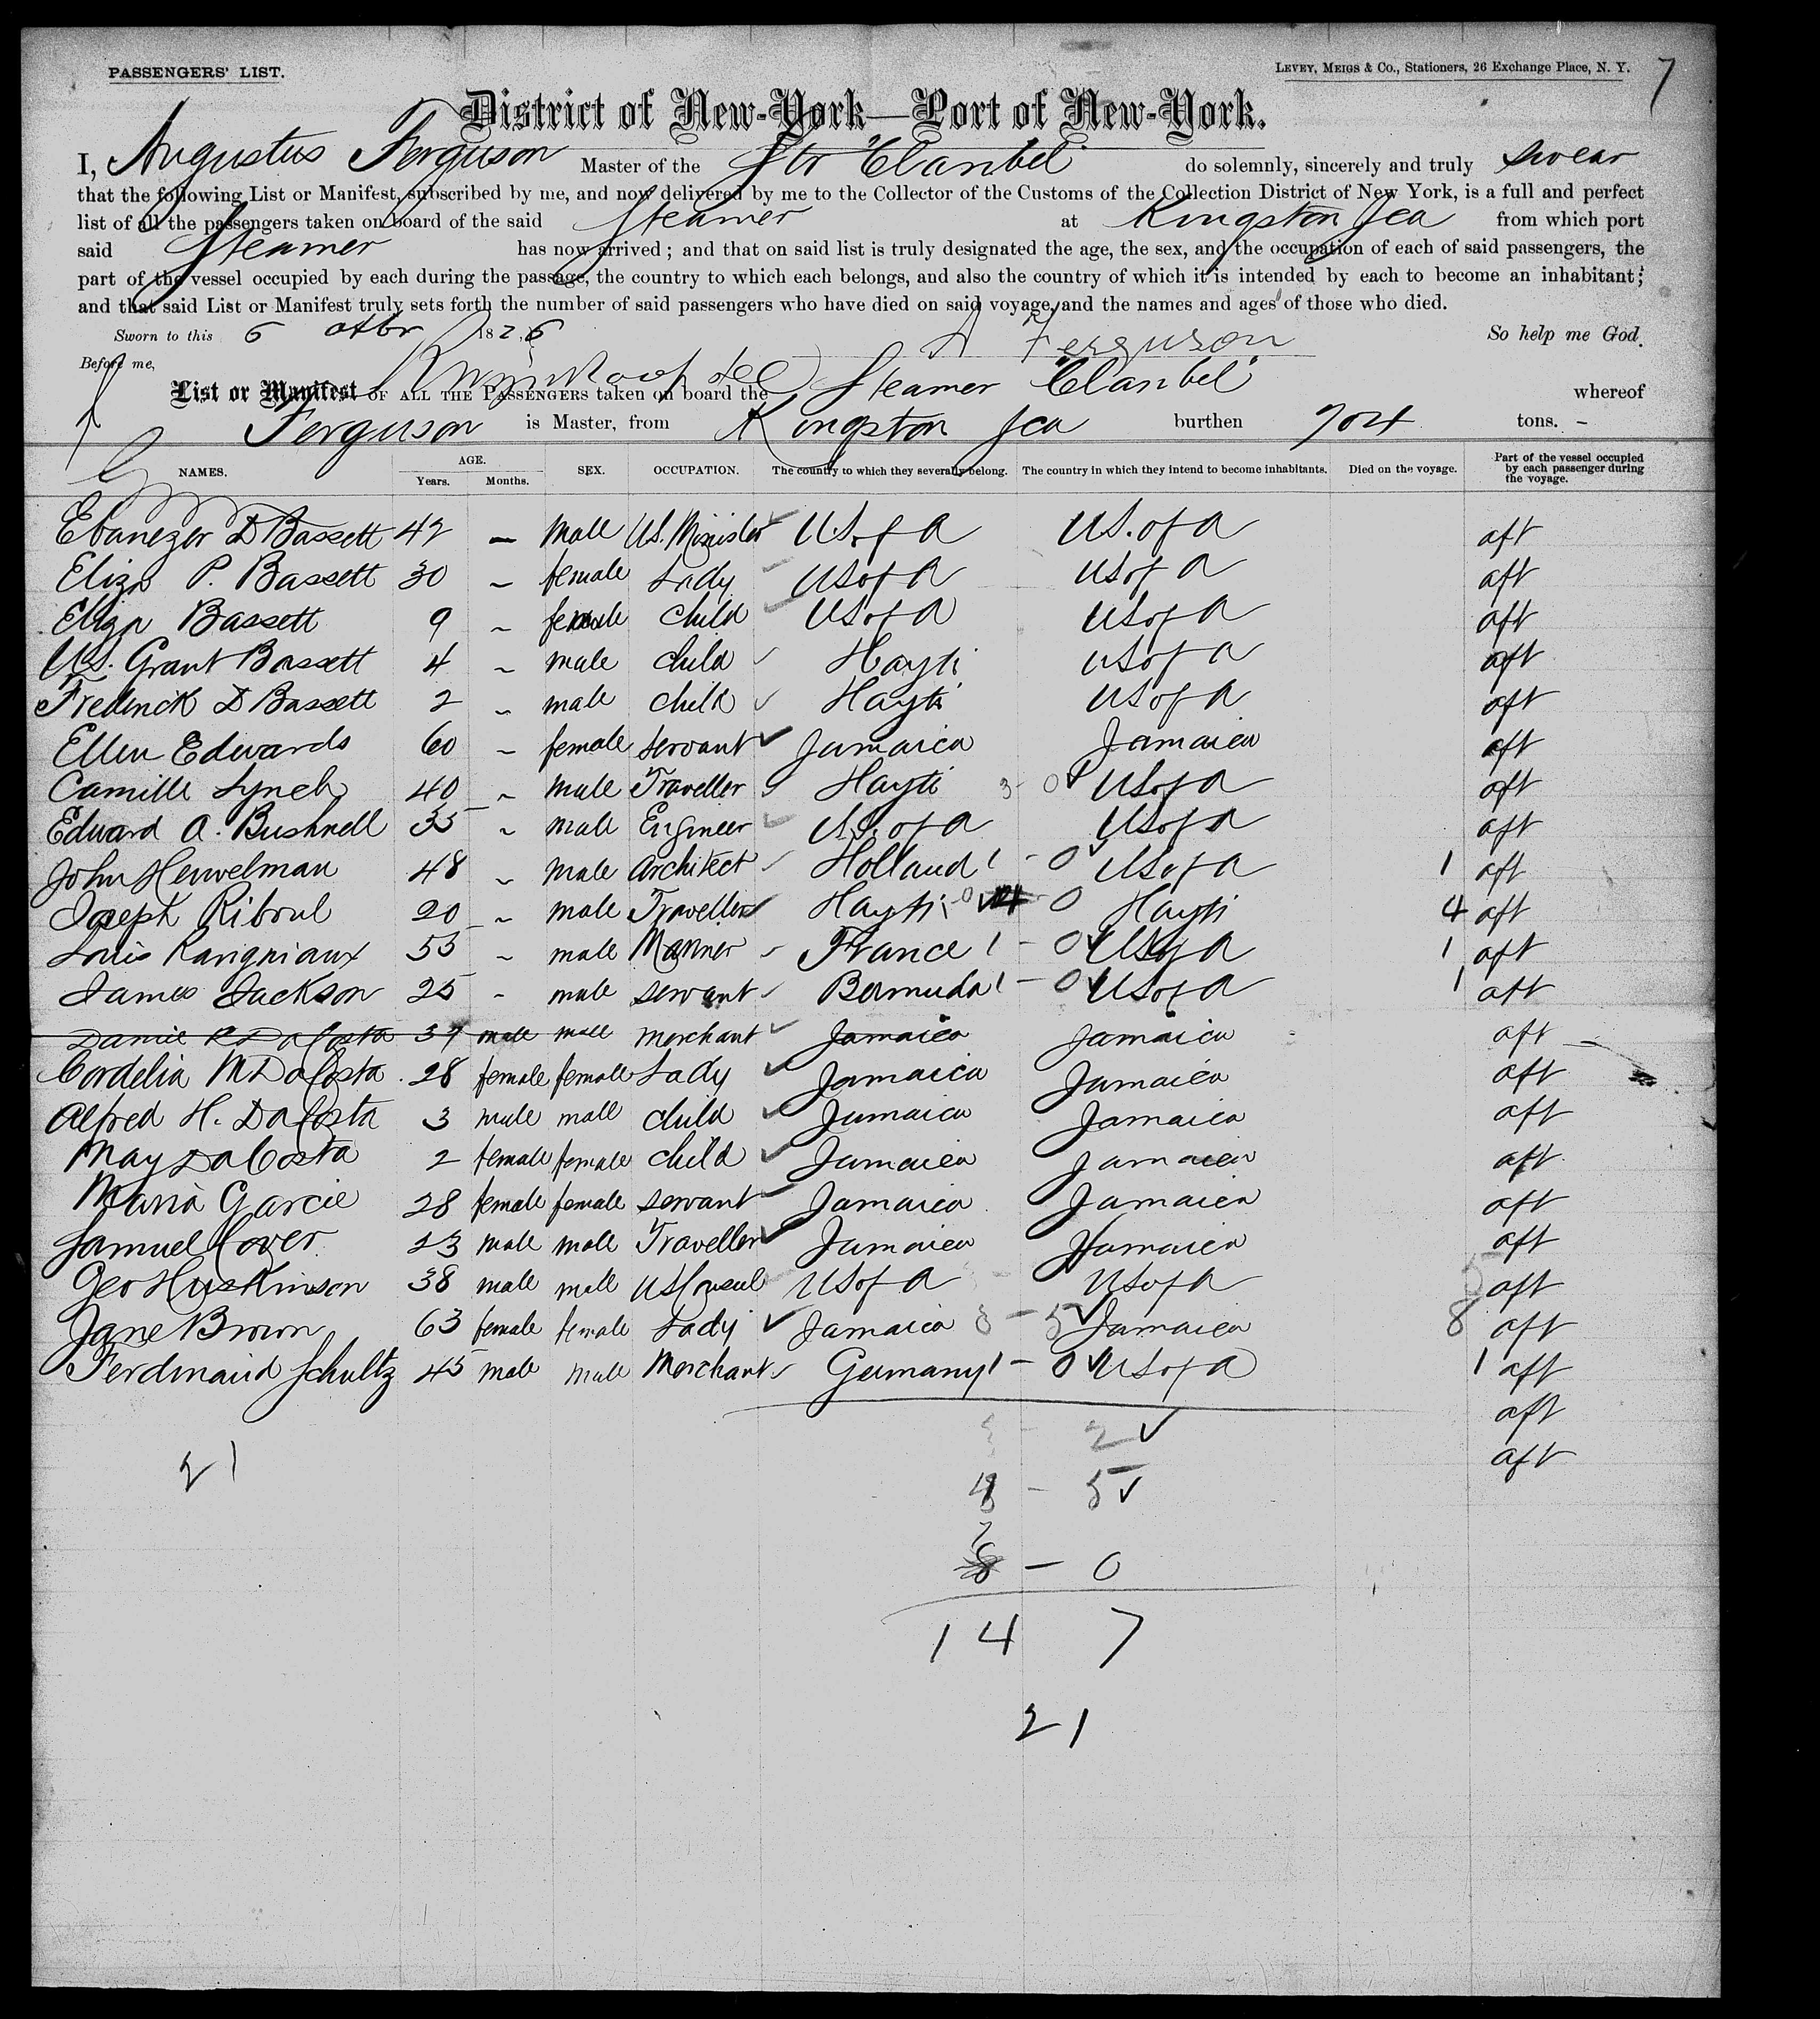 PASSENGERS' LIST.
LEVEY, MEIGS & CO., Stationers, 26 Exchange Place, N. Y.
7
District of New-York—Port of New-York.
I, Augustus Ferguson Master of the Str "Claribel" do solemnly, sincerely and truly swear
that the following List or Manifest, subscribed by me, and now delivered by me to the Collector of the Customs of the Collection District of New York, is a full and perfect
list of all the passengers taken on board of the said Steamer at Kingston Jca from which port
said Steamer has now arrived; and that on said list is truly designated the age, the sex, and the occupation of each of said passengers, the
part of the vessel occupied by each during the passage, the country to which each belongs, and also the country of which it is intended by each to become an inhabitant;
and that said List or Manifest truly sets forth the number of said passengers who have died on said voyage, and the names and ages of those who died.
Sworn to this 6 187 6 A Ferguson So help me God.
Before me,
List or Manifest OF ALL THE PASSENGERS taken on board the Steamer "Claribel" whereof
Ferguson is Master, from Kingston Jca burthen 704 tons.
NAMES. AGE. SEX. OCCUPATION. The country to which they severally belong. The country in which they intend to become inhabitants. Died on the voyage. Part of the vessel occupied by each passenger during the voyage.
Years. Months.
Ebanezer D Bassett 42 – male U.S. Minister U.S. of A U.S. of A aft
Eliza P. Bassett 30 – female Lady US of A US of A aft
Eliza Bassett 9 – female child US of A US of A aft
U.S. Grant Bassett 4 – male child Hayti US of A aft
Frederick D Bassett 2 – male child Hayti US of A aft
Ellen Edwards 60 – female servant Jamaica Jamaica aft
Camille Lynch 40 – male Traveller Hayti 3 - 0 US of A aft
Edward A. Bushnell 35 – male Engineer U.S. of A US of A aft
John Heuvelman 48 – male Architect Holland 1 - 0 US of A 1 aft
Joseph Riboul 20 – male Traveller Hayti 0 Hayti 4 aft
Louis Ravigniaux 55 – male Mariner France 1 - 0 US of A 1 aft
James Jackson 25 - male servant Bermuda 1 - 0 US of A 1 aft
Daniel R DaCosta 37 male male merchant Jamaica Jamaica aft
Cordelia M DaCosta 28 female female Lady Jamaica Jamaica aft
Alfred H. DaCosta 3 male male child Jamaica Jamaica aft
May DaCosta 2 female female child Jamaica Jamaica aft
Maria Garcie 28 female female servant Jamaica Jamaica aft
Samuel Cover 23 male male Traveller Jamaica Jamaica aft
Geo Huskinson 38 male male US Consul US of A US of A aft
Jane Brown 63 female female Lady Jamaica 3 - 5 Jamaica 8 aft
Ferdinand Schultz 45 male male Merchant Germany 1 - 0 US of A 1 aft
2 aft
21 aft
4 - 5
7
8 - 0
14 7
21